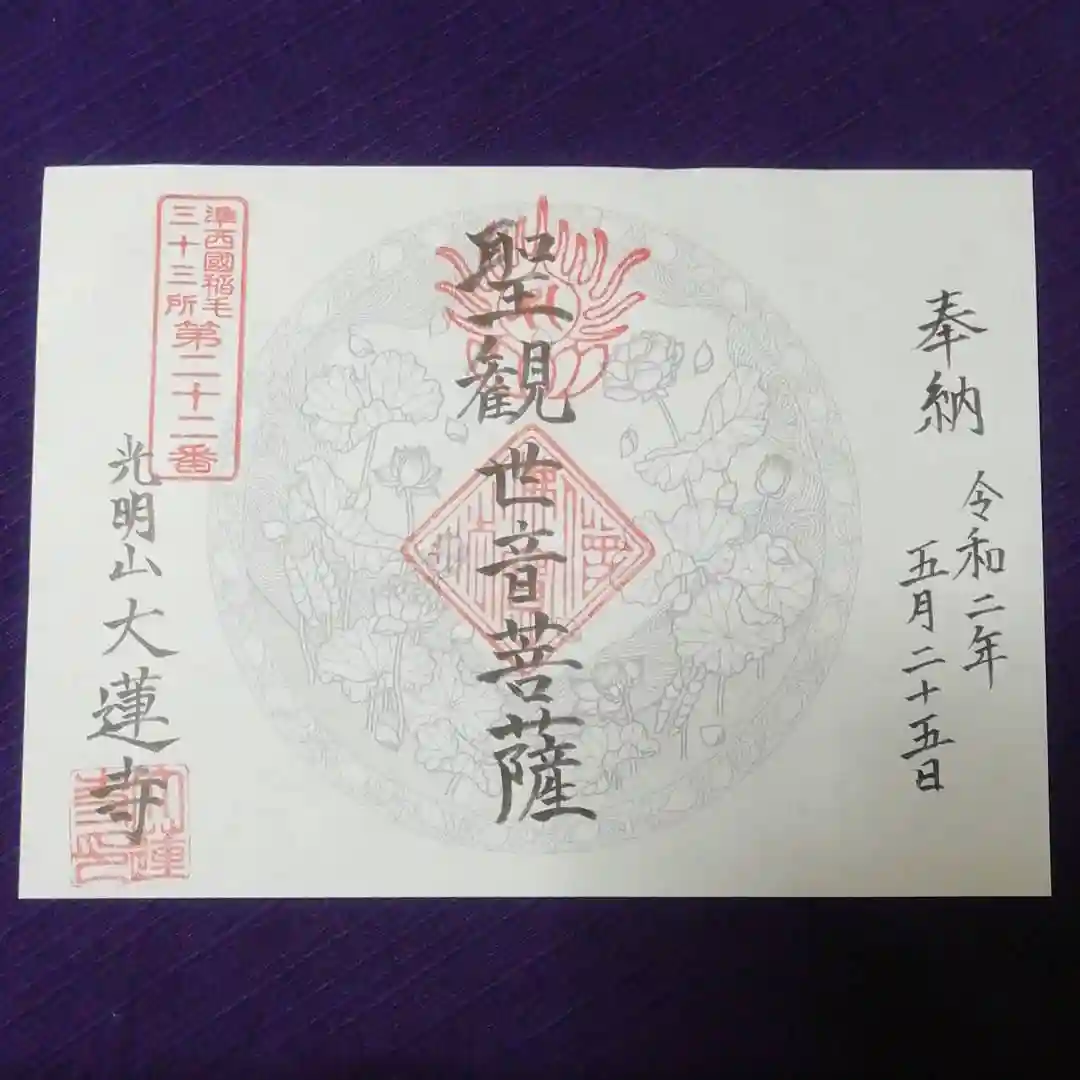 奉納
令和二年
五月二十五日
聖観世音菩薩
準西國稲毛
三十三所第二十二番
光明山大蓮寺